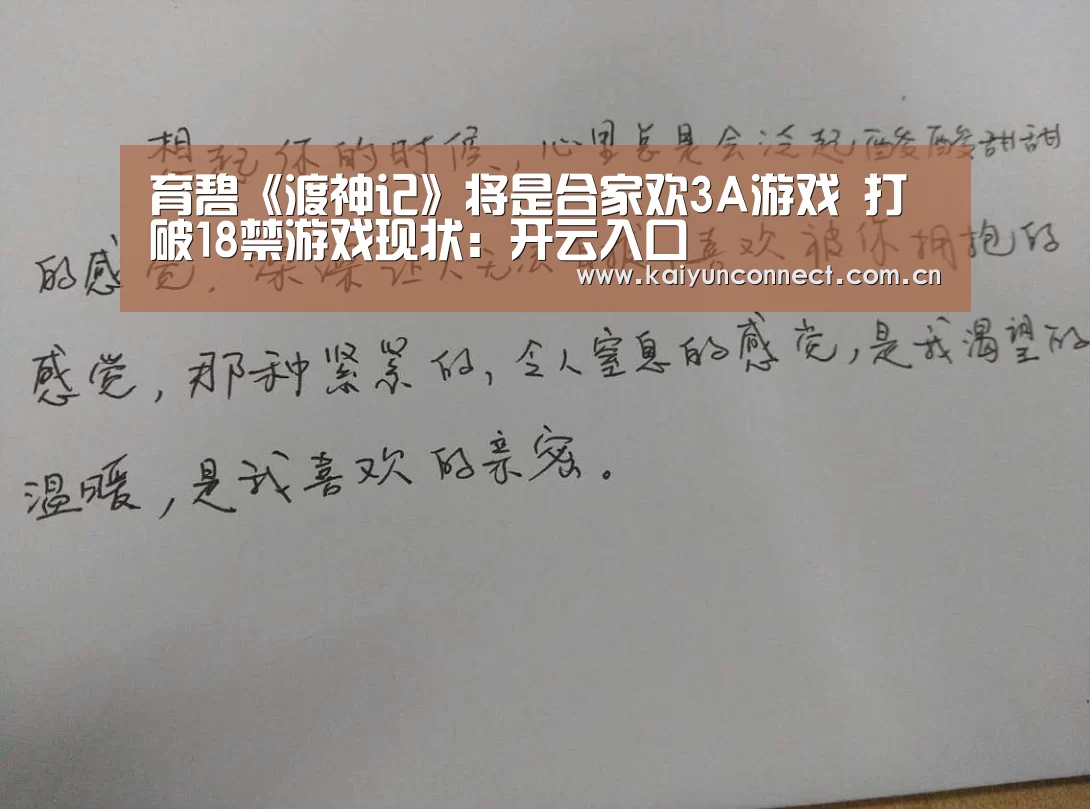 想起你的时候，心里总是会泛起酸酸甜甜
育碧《渡神记》将是合家欢3A游戏 打
破18禁游戏现状：开云入口
www.kaiyunconnect.com.cn
的感觉，深深让人无法 喜欢被你拥抱的
感觉，那种紧紧的，令人窒息的感觉，是我渴望的
温暖，是我喜欢的亲密。